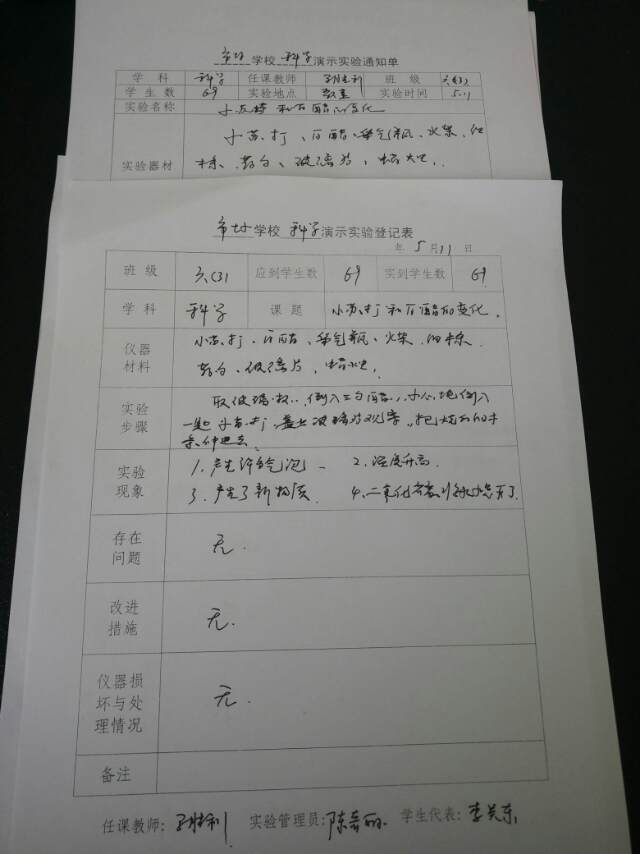 学校 科学 演示实验通知单
学科 科学 任课教师 班级 六(3)
学生数 69 实验地点 教室 实验时间 5.11
实验名称 小苏打和白醋的变化
小苏打、白醋、集气瓶、火柴、
实验器材 玻璃片
学校 科学 演示实验登记表
年 5 月 11 日
班级 六(3) 应到学生数 69 实到学生数 69
学科 科学 课题 小苏打和白醋的变化.
仪器 小苏打、白醋、集气瓶、火柴
材料 玻璃片
实验 取玻璃 倒入 白醋, 小心地倒入
步骤 小苏打, 盖上玻璃片观察, 把
实验 1.产生许多气泡 2.温度升高.
现象 3.产生了新物质 4.二氧化
存在
问题 无.
改进
措施 无.
仪器损
坏与处 无.
理情况
备注
任课教师: 实验管理员: 学生代表: